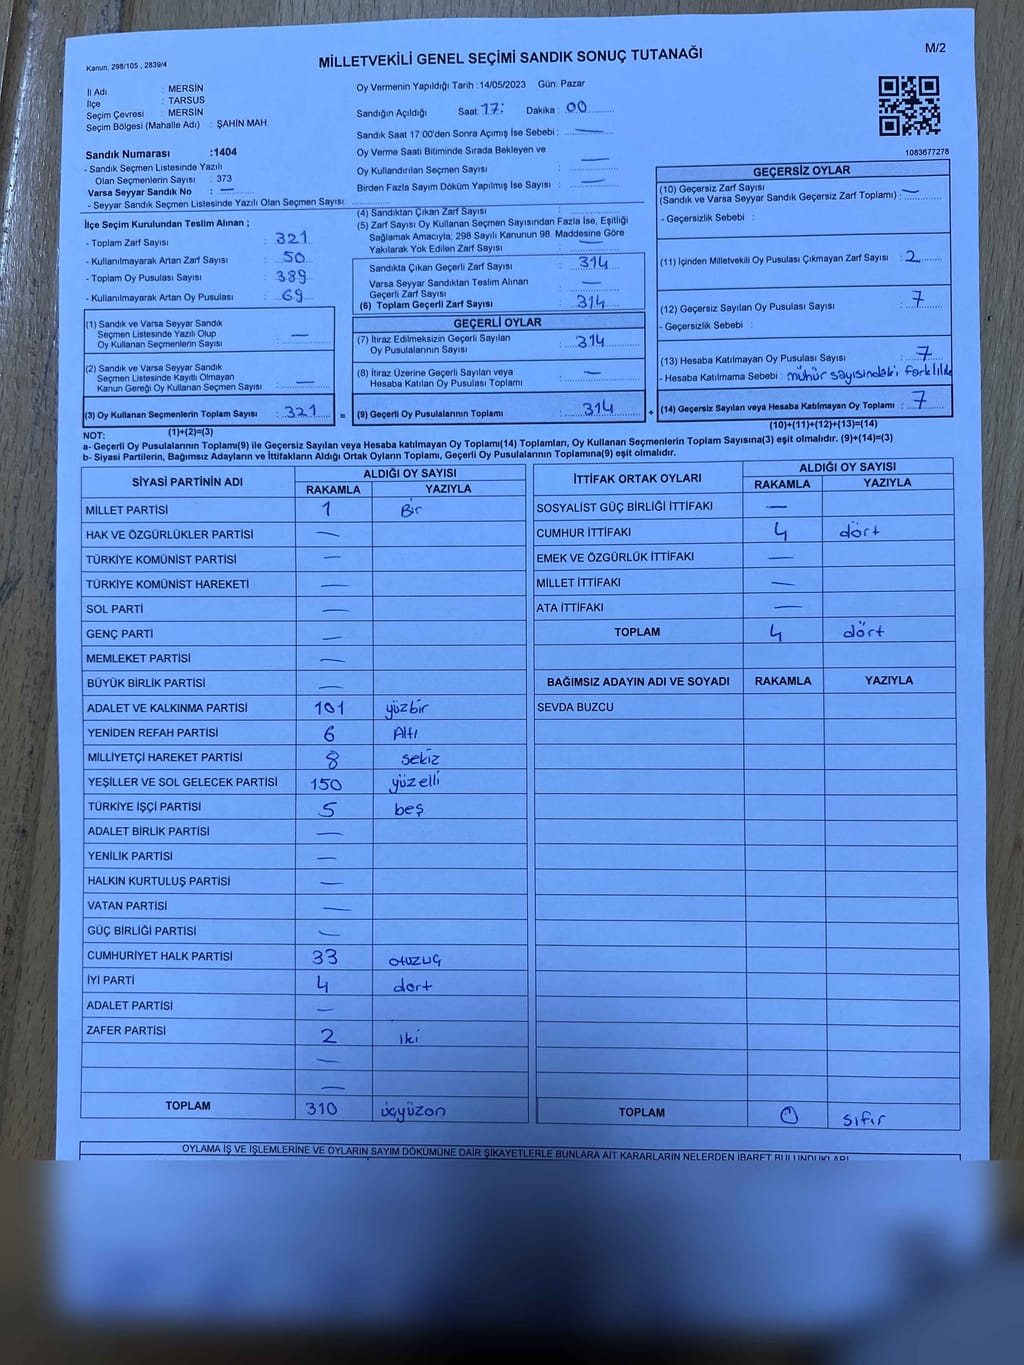 Kanun: 298/105 , 2839/4
MİLLETVEKİLİ GENEL SEÇİMİ SANDIK SONUÇ TUTANAĞI
M/2
İl Adı : MERSİN
İlçe : TARSUS
Seçim Çevresi : MERSİN
Seçim Bölgesi (Mahalle Adı) : ŞAHİN MAH.
Sandık Numarası :1404
- Sandık Seçmen Listesinde Yazılı
Olan Seçmenlerin Sayısı : 373
Varsa Seyyar Sandık No : —
- Seyyar Sandık Seçmen Listesinde Yazılı Olan Seçmen Sayısı:
Oy Vermenin Yapıldığı Tarih :14/05/2023 Gün: Pazar
Sandığın Açıldığı Saat: 17: Dakika : 00
Sandık Saat 17:00'den Sonra Açımış İse Sebebi : —
Oy Verme Saati Bitiminde Sırada Bekleyen ve
Oy Kullandırılan Seçmen Sayısı : —
Birden Fazla Sayım Döküm Yapılmış İse Sayısı : —
1083677278
İlçe Seçim Kurulundan Teslim Alınan ;
- Toplam Zarf Sayısı : 321
- Kullanılmayarak Artan Zarf Sayısı : 50
- Toplam Oy Pusulası Sayısı : 389
- Kullanılmayarak Artan Oy Pusulası : 69
(1) Sandık ve Varsa Seyyar Sandık
Seçmen Listesinde Yazılı Olup
Oy Kullanan Seçmenlerin Sayısı : —
(2) Sandık ve Varsa Seyyar Sandık
Seçmen Listesinde Kayıtlı Olmayan
Kanun Gereği Oy Kullanan Seçmen Sayısı : —
(3) Oy Kullanan Seçmenlerin Toplam Sayısı : 321 =
(1)+(2)=(3)
(4) Sandıktan Çıkan Zarf Sayısı :
(5) Zarf Sayısı Oy Kullanan Seçmen Sayısından Fazla İse, Eşitliği
Sağlamak Amacıyla; 298 Sayılı Kanunun 98. Maddesine Göre
Yakılarak Yok Edilen Zarf Sayısı : —
Sandıkta Çıkan Geçerli Zarf Sayısı : 314
Varsa Seyyar Sandıktan Teslim Alınan
Geçerli Zarf Sayısı : —
(6) Toplam Geçerli Zarf Sayısı : 314
GEÇERLİ OYLAR
(7) İtiraz Edilmeksizin Geçerli Sayılan
Oy Pusulalarının Sayısı : 314
(8) İtiraz Üzerine Geçerli Sayılan veya
Hesaba Katılan Oy Pusulası Toplamı : —
(9) Geçerli Oy Pusulalarının Toplamı : 314 +
GEÇERSİZ OYLAR
(10) Geçersiz Zarf Sayısı
(Sandık ve Varsa Seyyar Sandık Geçersiz Zarf Toplamı) : —
- Geçersizlik Sebebi :
(11) İçinden Milletvekili Oy Pusulası Çıkmayan Zarf Sayısı : 2
(12) Geçersiz Sayılan Oy Pusulası Sayısı : 7
- Geçersizlik Sebebi :
(13) Hesaba Katılmayan Oy Pusulası Sayısı : 7
- Hesaba Katılmama Sebebi : mühür sayısındaki
(14) Geçersiz Sayılan veya Hesaba Katılmayan Oy Toplamı : 7
(10)+(11)+(12)+(13)=(14)
NOT:
a- Geçerli Oy Pusulalarının Toplamı(9) ile Geçersiz Sayılan veya Hesaba katılmayan Oy Toplamı(14) Toplamları, Oy Kullanan Seçmenlerin Toplam Sayısına(3) eşit olmalıdır. (9)+(14)=(3)
b- Siyasi Partilerin, Bağımsız Adayların ve İttifakların Aldığı Ortak Oyların Toplamı, Geçerli Oy Pusulalarının Toplamına(9) eşit olmalıdır.
SİYASİ PARTİNİN ADI ALDIĞI OY SAYISI
RAKAMLA YAZIYLA
MİLLET PARTİSİ 1 Bir
HAK VE ÖZGÜRLÜKLER PARTİSİ —
TÜRKİYE KOMÜNİST PARTİSİ —
TÜRKİYE KOMÜNİST HAREKETİ —
SOL PARTİ —
GENÇ PARTİ —
MEMLEKET PARTİSİ —
BÜYÜK BİRLİK PARTİSİ —
ADALET VE KALKINMA PARTİSİ 101 yüzbir
YENİDEN REFAH PARTİSİ 6 Altı
MİLLİYETÇİ HAREKET PARTİSİ 8 sekiz
YEŞİLLER VE SOL GELECEK PARTİSİ 150 yüzelli
TÜRKİYE İŞÇİ PARTİSİ 5 beş
ADALET BİRLİK PARTİSİ —
YENİLİK PARTİSİ —
HALKIN KURTULUŞ PARTİSİ —
VATAN PARTİSİ —
GÜÇ BİRLİĞİ PARTİSİ —
CUMHURİYET HALK PARTİSİ 33 otuzüç
İYİ PARTİ 4 dört
ADALET PARTİSİ —
ZAFER PARTİSİ 2 iki
—
—
TOPLAM 310 üçyüzon
İTTİFAK ORTAK OYLARI ALDIĞI OY SAYISI
RAKAMLA YAZIYLA
SOSYALİST GÜÇ BİRLİĞİ İTTİFAKI —
CUMHUR İTTİFAKI 4 dört
EMEK VE ÖZGÜRLÜK İTTİFAKI —
MİLLET İTTİFAKI —
ATA İTTİFAKI —
TOPLAM 4 dört
BAĞIMSIZ ADAYIN ADI VE SOYADI RAKAMLA YAZIYLA
SEVDA BUZCU
TOPLAM 0 sıfır
OYLAMA İŞ VE İŞLEMLERİNE VE OYLARIN SAYIM DÖKÜMÜNE DAİR ŞİKAYETLERLE BUNLARA AİT KARARLARIN NELERDEN İBARET BULUNDUKLARI